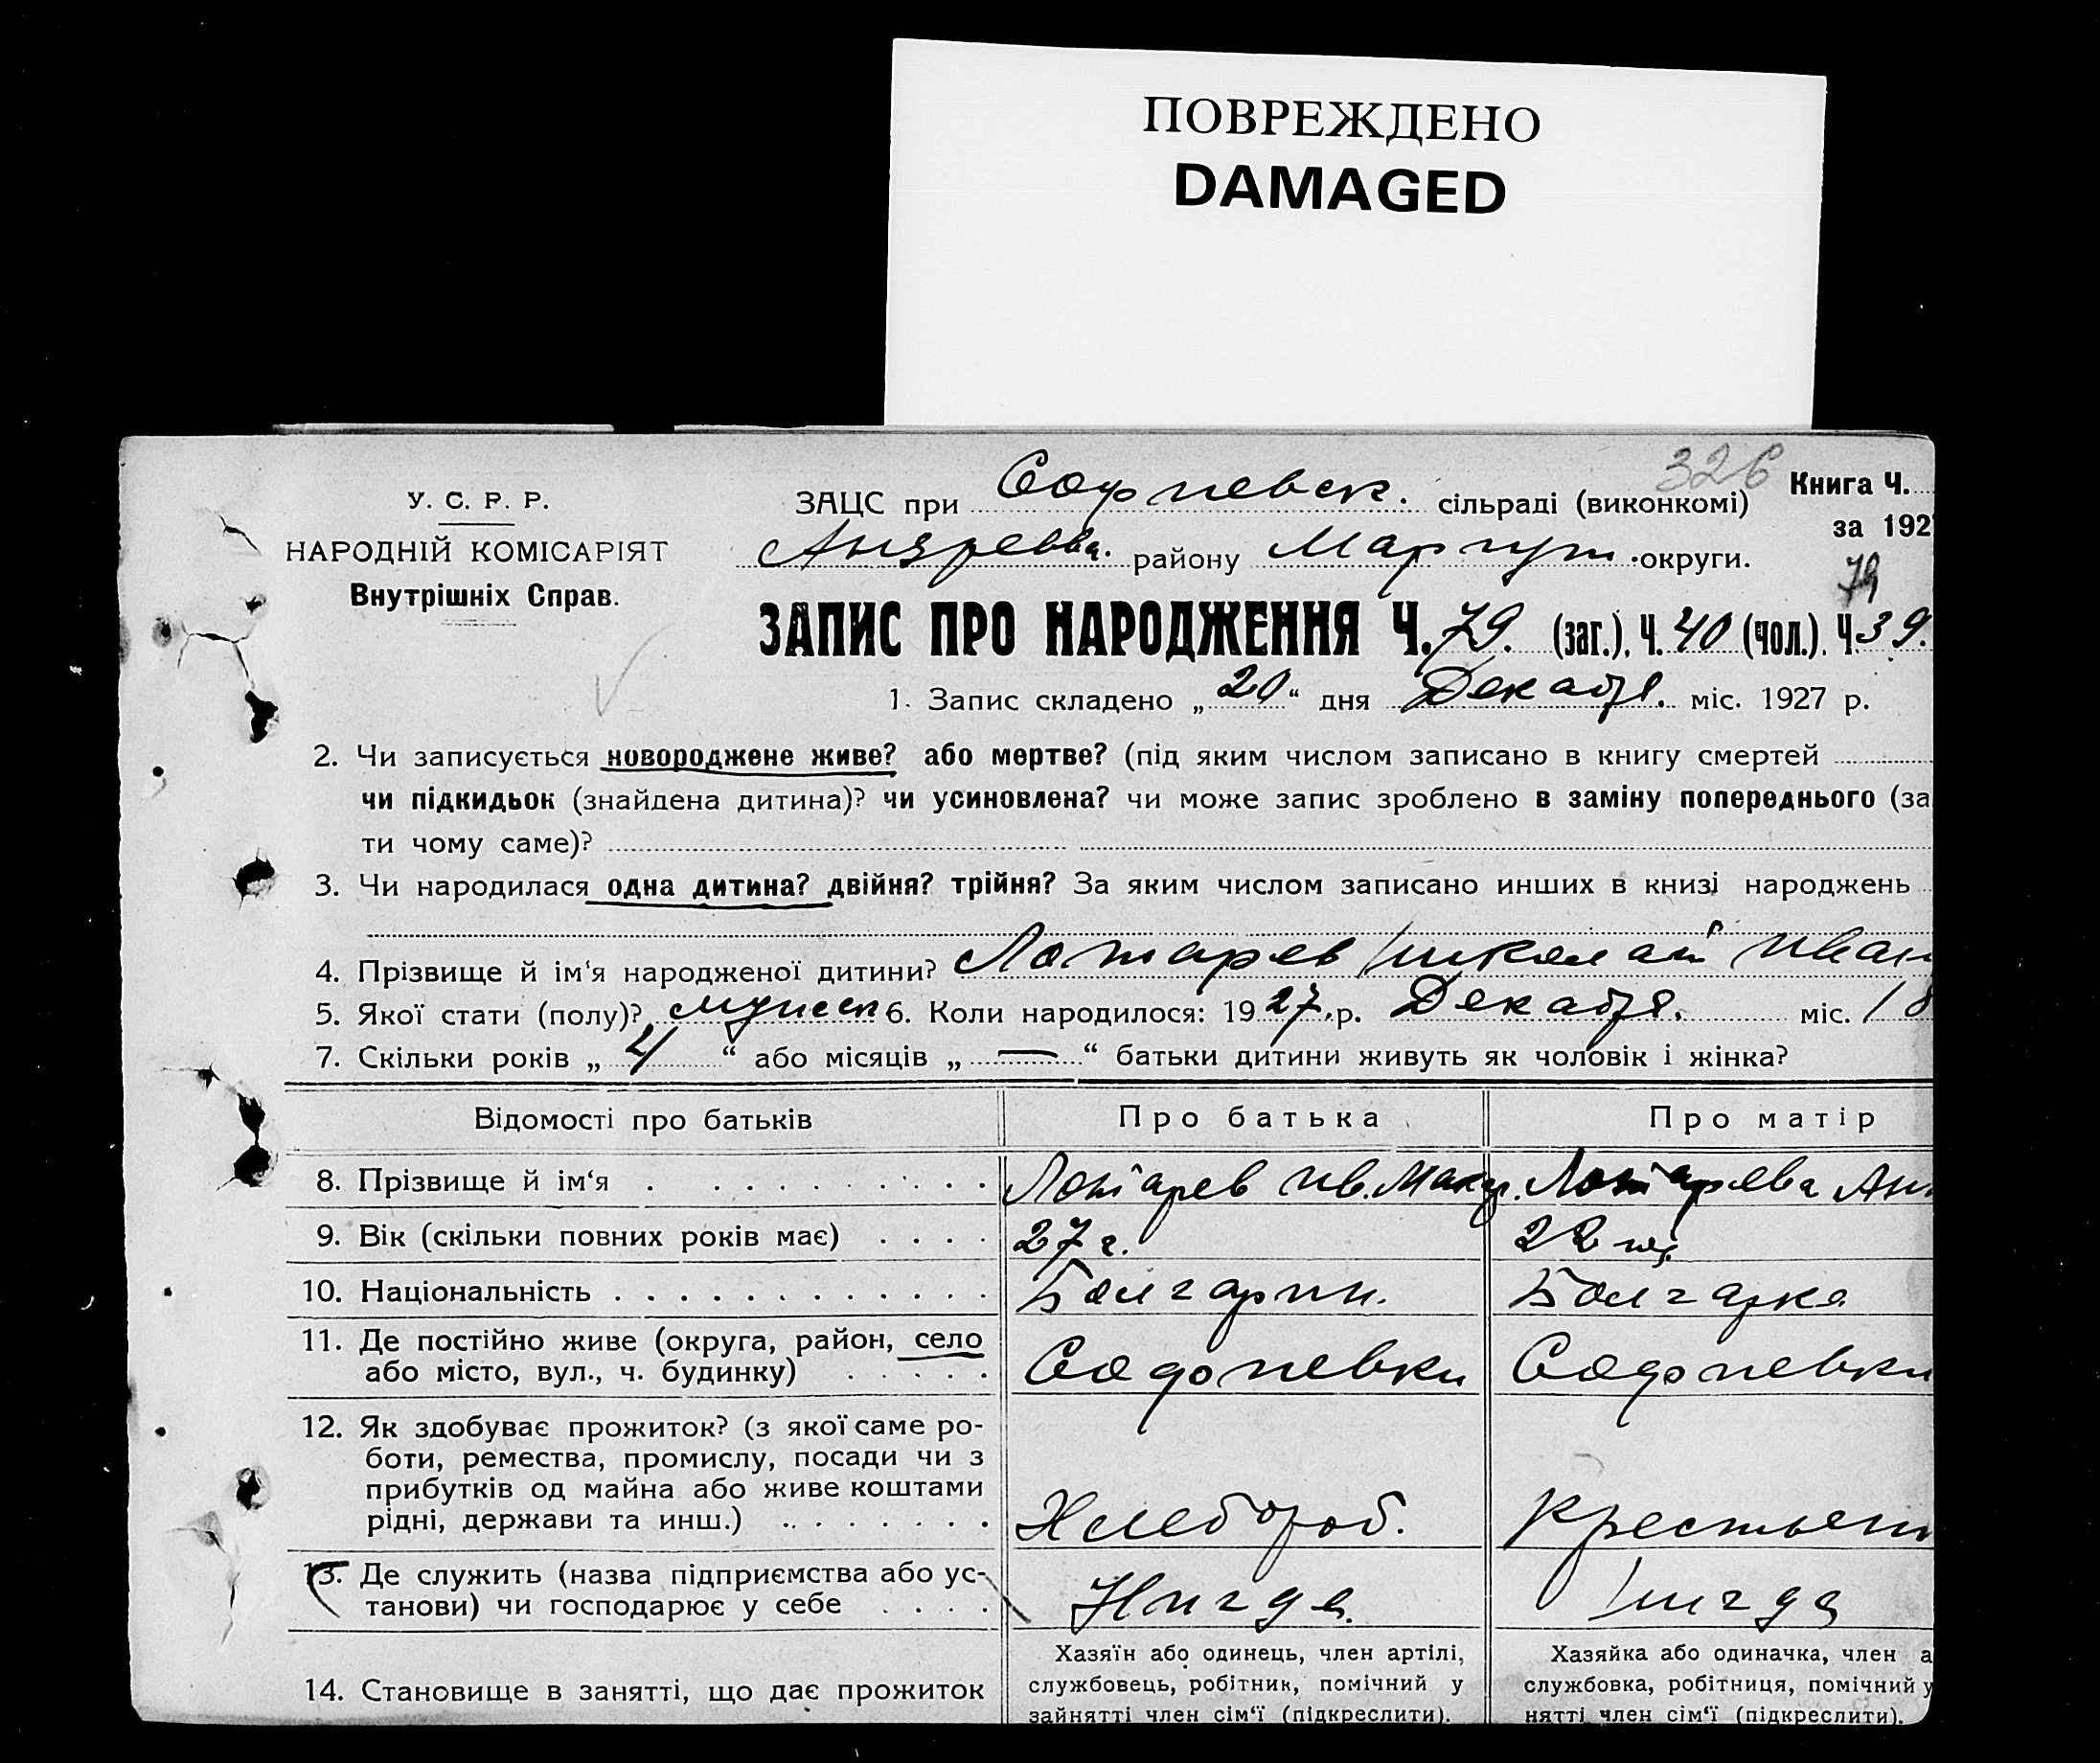 ПОВРЕЖДЕНО
DAMAGED
326
У. С. Р. Р.
НАРОДНІЙ КОМІСАРІЯТ
Внутрішніх Справ.
ЗАЦС при Софиевск. сільраді (виконкомі)
Книга Ч.
за 192
района Мариуп. округи.
79
ЗАПИС ПРО НАРОДЖЕННЯ Ч. 79. (заг.). Ч. 40 (чол.). Ч. 39.
1. Запис складено „20“ дня Декабя. міс. 1927 р.
2. Чи записується новороджене живе? або мертве? (під яким числом записано в книгу смертей
чи підкидьок (знайдена дитина)? чи усиновлена? чи може запис зроблено в заміну попереднього (за
ти чому саме)?
3. Чи народилася одна дитина? двійня? трійня? За яким числом записано инших в книзі народжень
4. Прізвище й ім‘я народженої дитини? Лотарев Николай Иван
5. Якої стати (полу)? мужск 6. Коли народилося: 1927. р. Декабя. міс. 18
7. Скільки років „4“ або місяців „—“ батьки дитини живуть як чоловік і жінка?
Відомості про батьків Про батька Про матір
8. Прізвище й ім‘я Лотарев Ив. Лотарева Анн
9. Вік (скільки повних років має) 27 г. 22
10. Національність Болгарин. Болгарка
11. Де постійно живе (округа, район, село
або місто, вул., ч. будинку) Софиевки Софиевки
12. Як здобуває прожиток? (з якої саме ро-
боти, ремества, промислу, посади чи з
прибутків од майна або живе коштами
рідні, держави та инш.) Хлебороб. Крестьян
13. Де служить (назва підприємства або ус-
танови) чи господарює у себе Нигде Нигде
14. Становище в занятті, що дає прожиток
Хазяїн або одинець, член артілі,
службовець, робітник, помічний у
зайнятті член сім‘ї (підкреслити).
Хазяйка або одиначка, член а
службовка, робітниця, помічний у
нятті член сім‘ї (підкреслити).